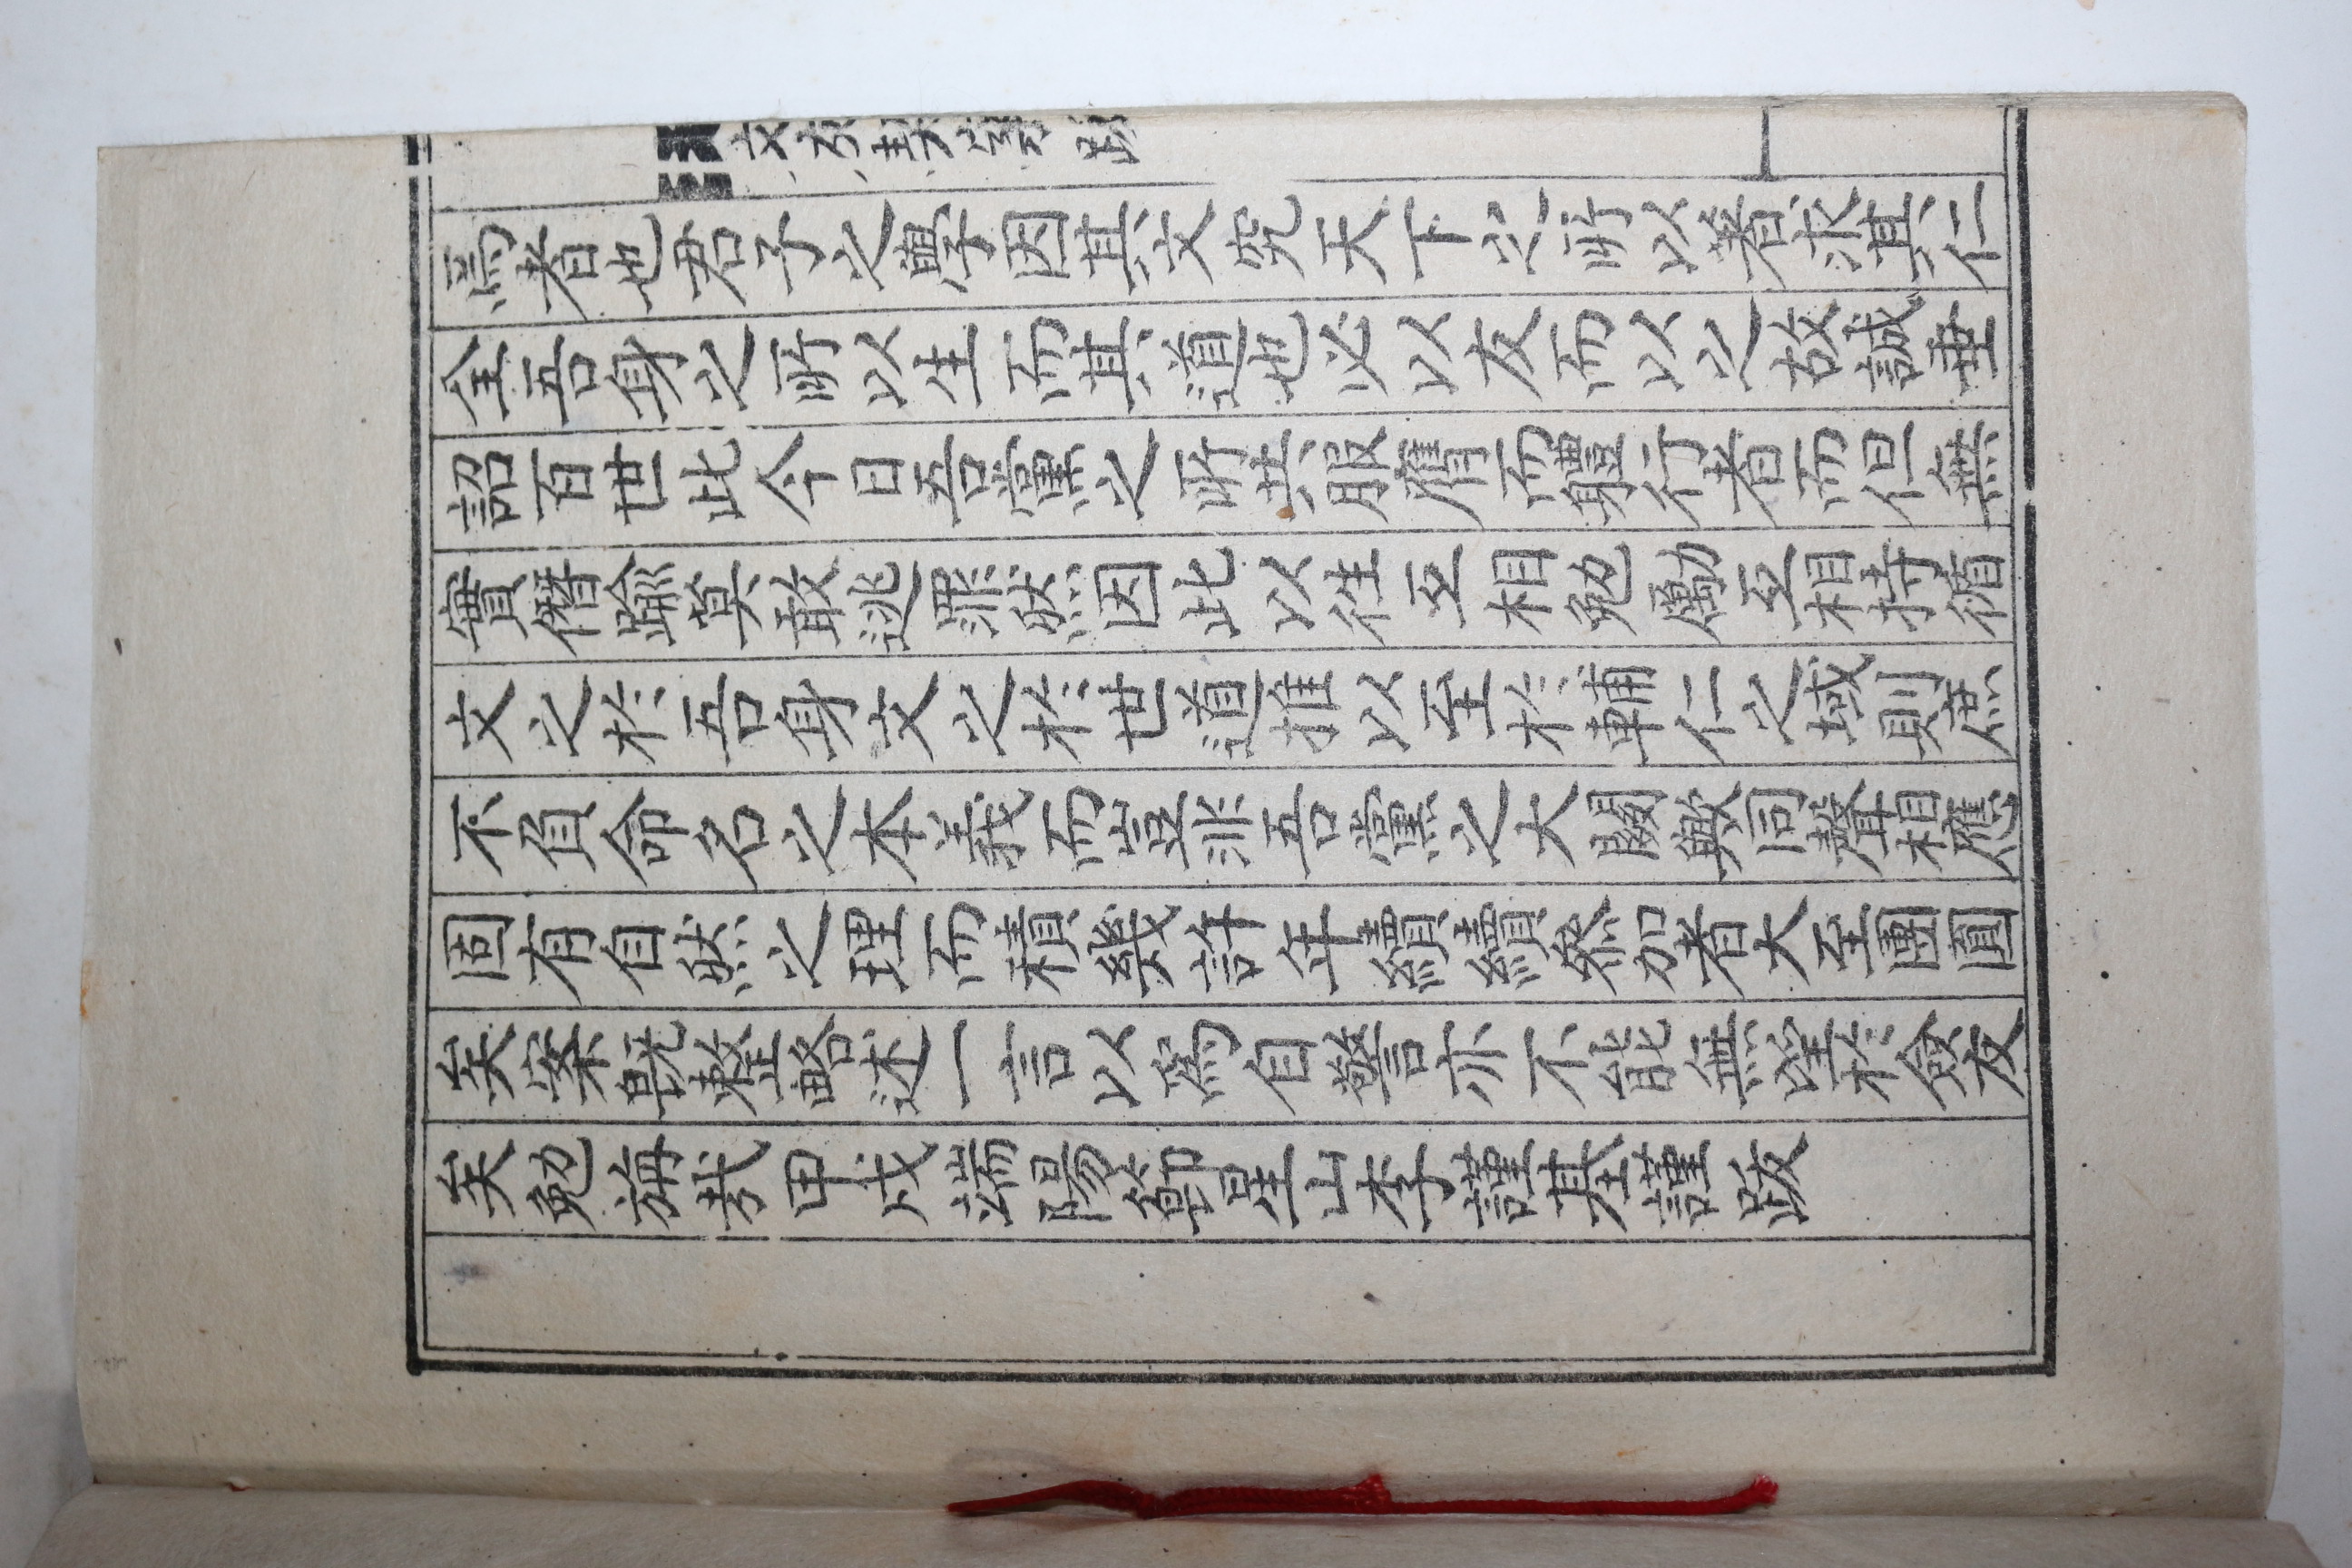 焉者也君子之學因其文究天下之所以著求其仁
全吾身之所以生而其道也必以友而以之故誠垂
詔百世此今日吾黨之所共服膺而體行者而但無
實僭踰莫敢逃罪然因此以往互相勉勵互相持循
文之於吾身文之於世道推以至於輔仁之域則庶
不負命名之本義而豈非吾黨之大關歟同聲相應
固有自然之理而積幾許年續續參加者大至團圓
矣案旣整略述一言以爲自警亦不能無望於僉友
矣勉旃哉甲戌端陽節星山李謹基謹跋